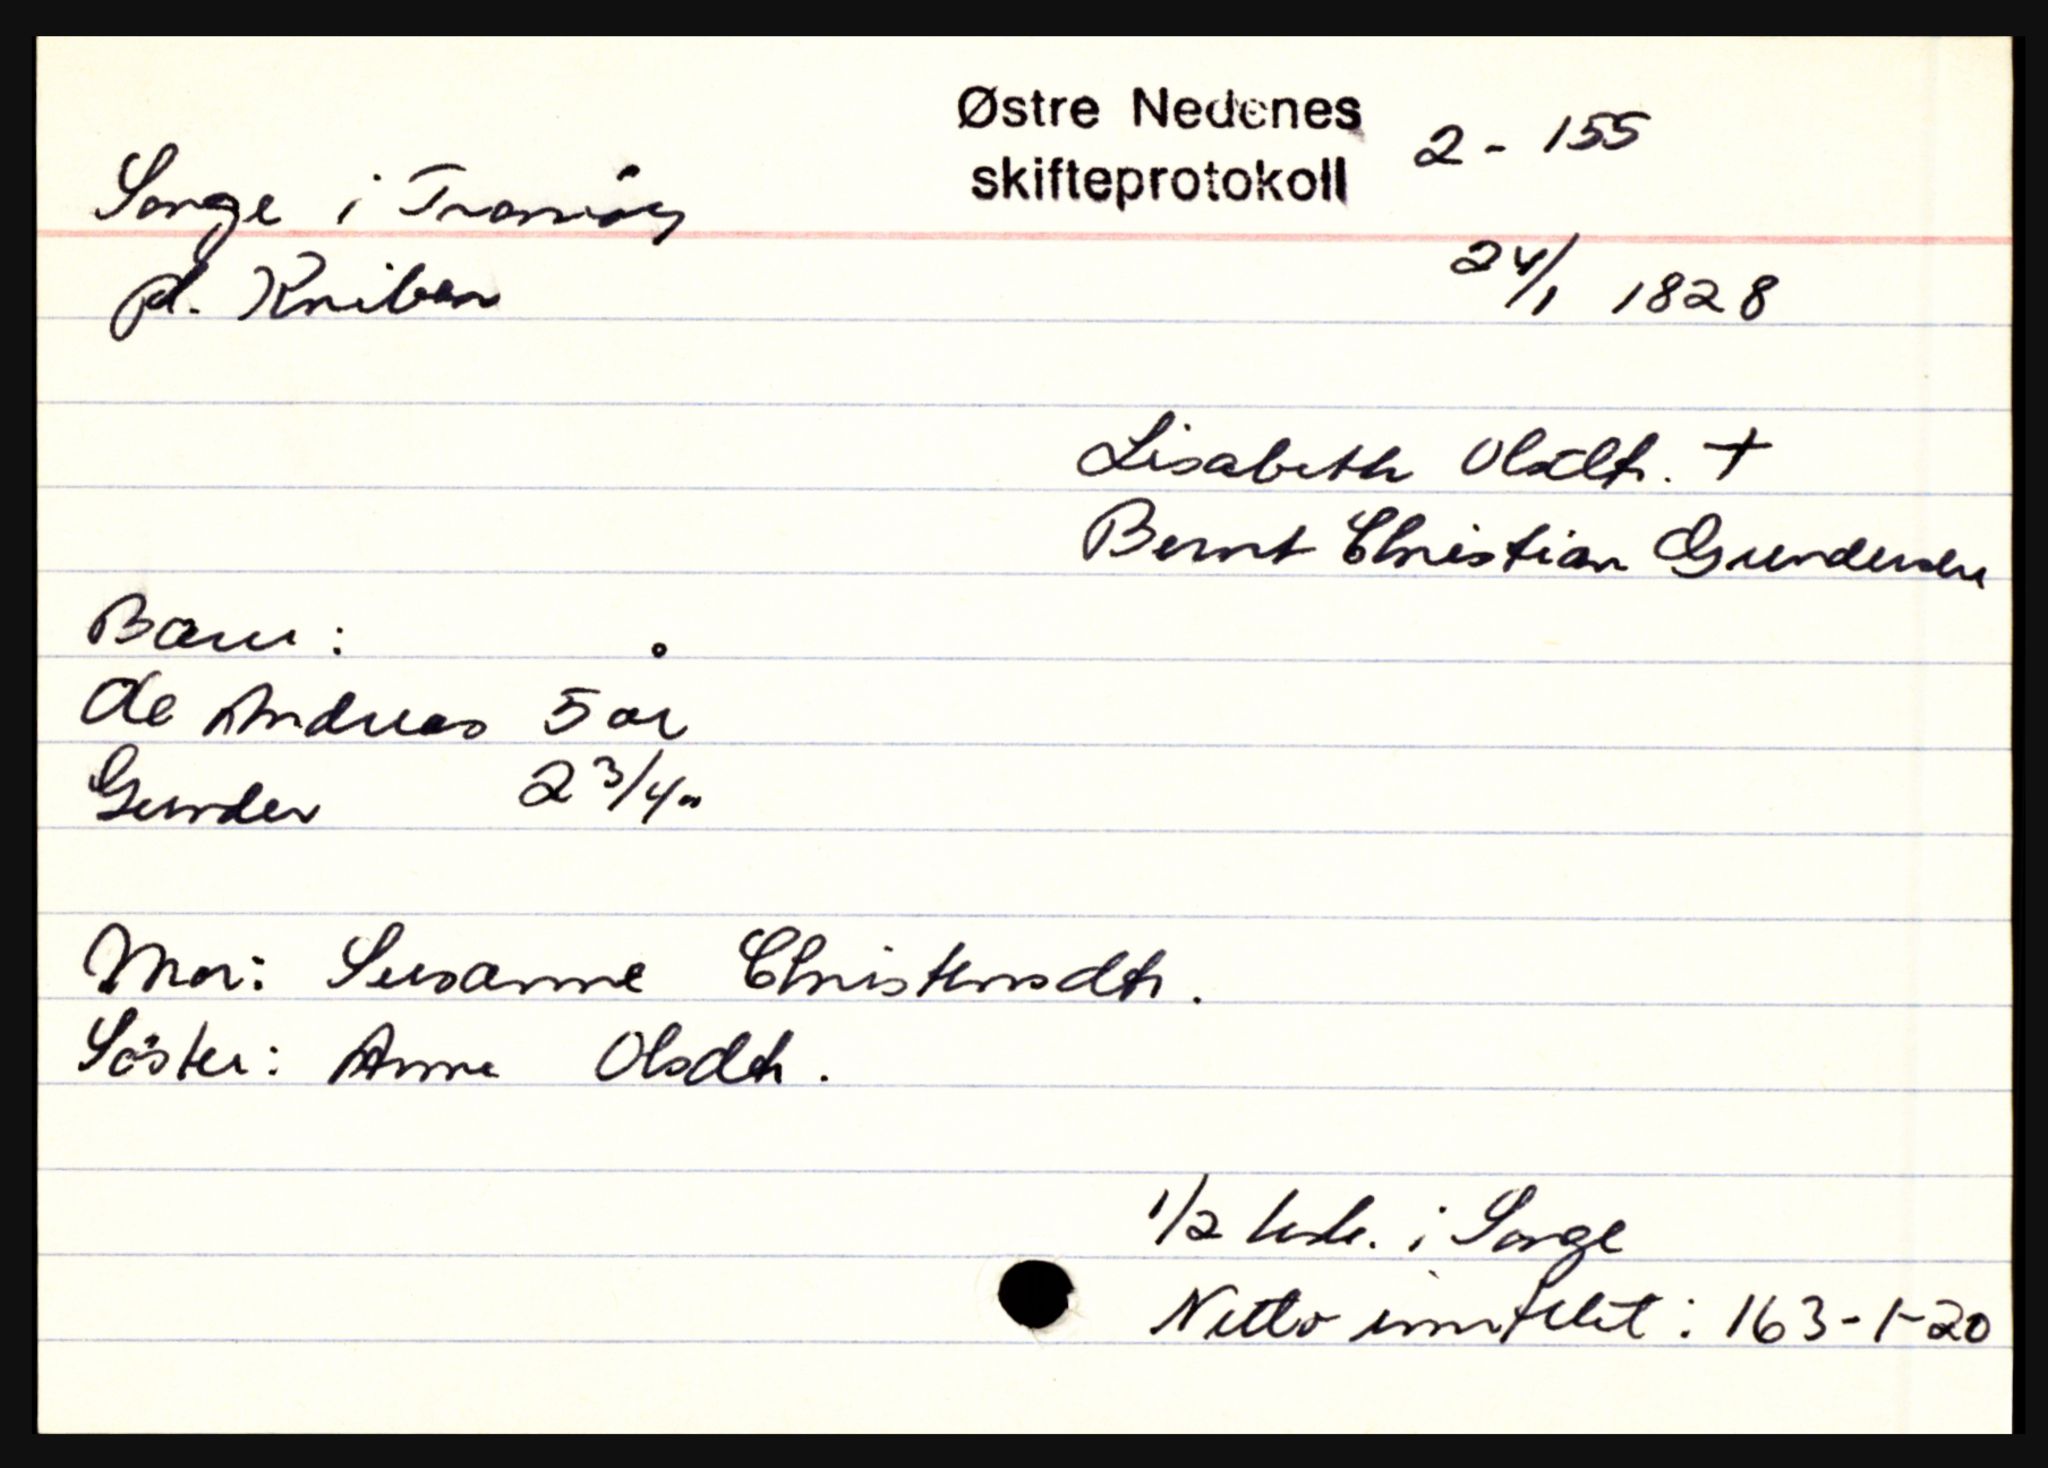 Østre Nedenes
skifteprotokoll 2 - 155
Songe i Tromöy
pl. Kniben
24/1 1828
Lisabeth Olsdtr. +
Bernt Christian Gundersen
Barn:
Ole Andreas 5 år
Gunder 2 3/4 "
Mor: Susanne Christensdtr.
Söster: Anne Olsdtr.
1/2 i Songe
Netto innteket: 163-1-20